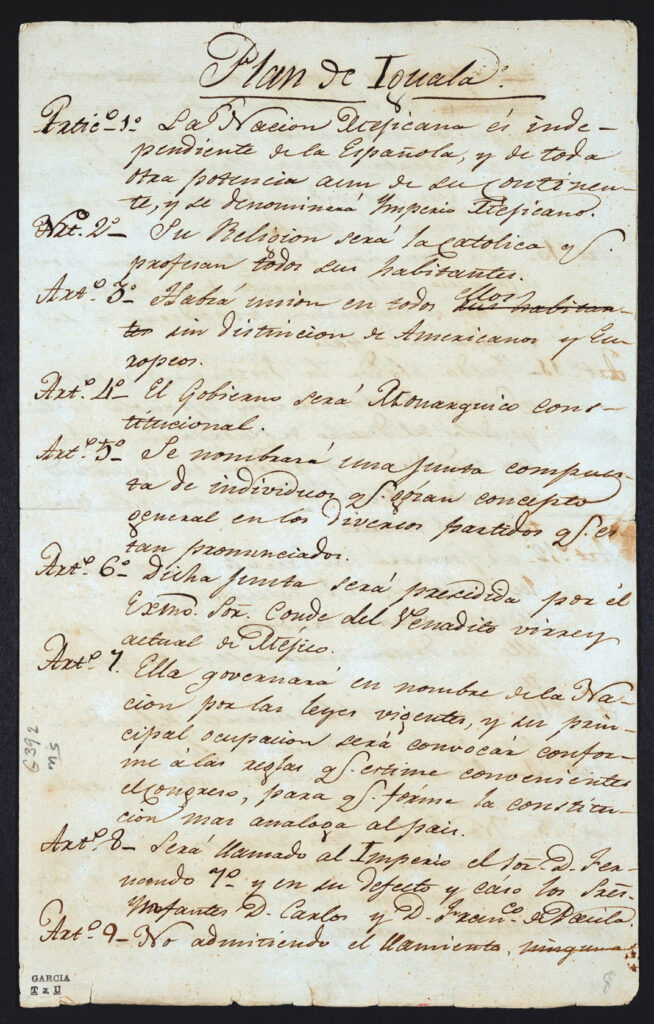 Plan de Iguala.
Artic.º 1º La Nacion Mejicana és inde-
pendiente de la Española, y de toda
otra potencia aun de su continen-
te, y se denominará Imperio Mejicano.
Art.º 2º Su Religion será la catolica q.e
profesan todos sus habitantes.
Art.º 3º Habrá union en todos ellos sus habitan-
tes sin distincion de Americanos y Eu-
ropeos.
Art.º 4º El Gobierno será Monarquico cons-
titucional.
Art.º 5º Se nombrará una junta compues-
ta de individuos q.e
general en los diversos partidos q.e es-
tan pronunciados.
Art.º 6º Dicha junta será precedida por él
Exmo. Sor. Conde del Venadito virrey
actual de Méjico.
Art.º 7. Ella governará en nombre de la Na-
cion por las leyes vigentes, y su prin-
cipal ocupacion será convocár confor-
me á las reglas q.e estime convenientes
el congreso, para q.e fórme la constitu-
cion mas analoga al pais.
Art.º 8 Será llamado al Imperio el Sor. D. Fer-
nando 7º y en su defecto y cáso los Sres.
Infantes D. Carlos y D. Fran.co de Paula.
Art.º 9 No admitiendo el llamiento, ninguna
G392
ms
GARCIA
TxU
8